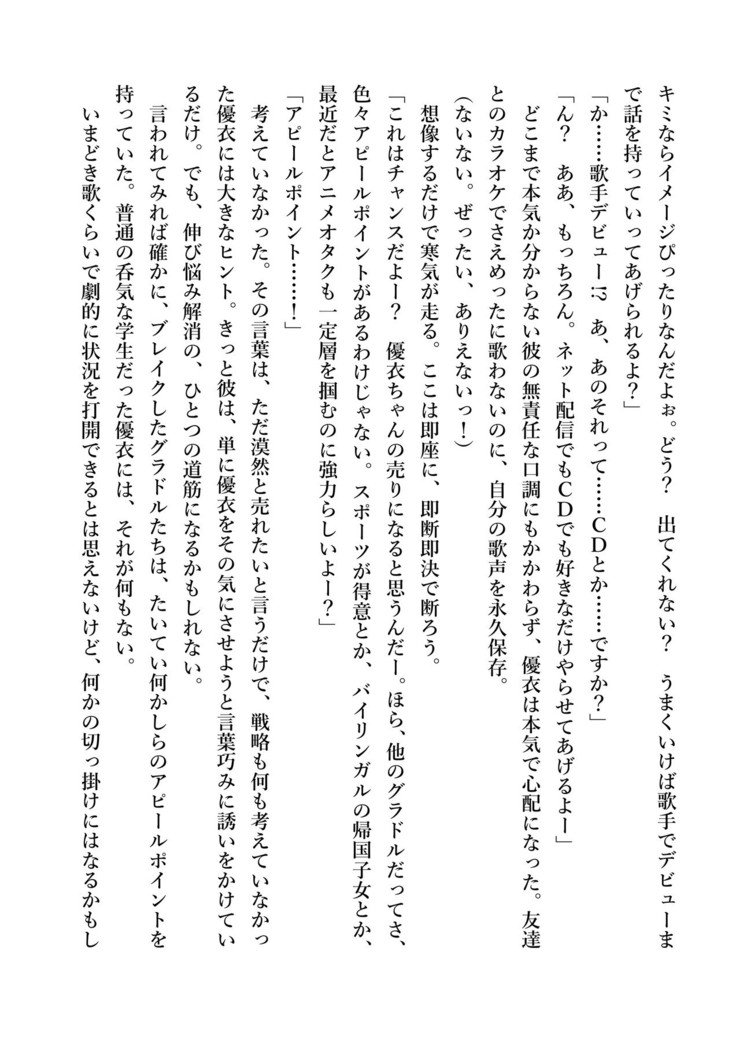 キミならイメージぴったりなんだよぉ。どう？　出てくれない？　うまくいけば歌手でデビューま
で話を持っていってあげられるよ？」
「か……歌手デビュー!?　あ、あのそれって……ＣＤとか……ですか？」
「ん？　ああ、もっちろん。ネット配信でもＣＤでも好きなだけやらせてあげるよー」
　どこまで本気か分からない彼の無責任な口調にもかかわらず、優衣は本気で心配になった。友達
とのカラオケでさえめったに歌わないのに、自分の歌声を永久保存。
(ないない。ぜったい、ありえないっ！)
　想像するだけで寒気が走る。ここは即座に、即断即決で断ろう。
「これはチャンスだよー？　優衣ちゃんの売りになると思うんだー。ほら、他のグラドルだってさ、
色々アピールポイントがあるわけじゃない。スポーツが得意とか、バイリンガルの帰国子女とか、
最近だとアニメオタクも一定層を掴むのに強力らしいよー？」
「アピールポイント……！」
　考えていなかった。その言葉は、ただ漠然と売れたいと言うだけで、戦略も何も考えていなかっ
た優衣には大きなヒント。きっと彼は、単に優衣をその気にさせようと言葉巧みに誘いをかけてい
るだけ。でも、伸び悩み解消の、ひとつの道筋になるかもしれない。
　言われてみれば確かに、ブレイクしたグラドルたちは、たいてい何かしらのアピールポイントを
持っていた。普通の呑気な学生だった優衣には、それが何もない。
　いまどき歌くらいで劇的に状況を打開できるとは思えないけど、何かの切っ掛けにはなるかもし